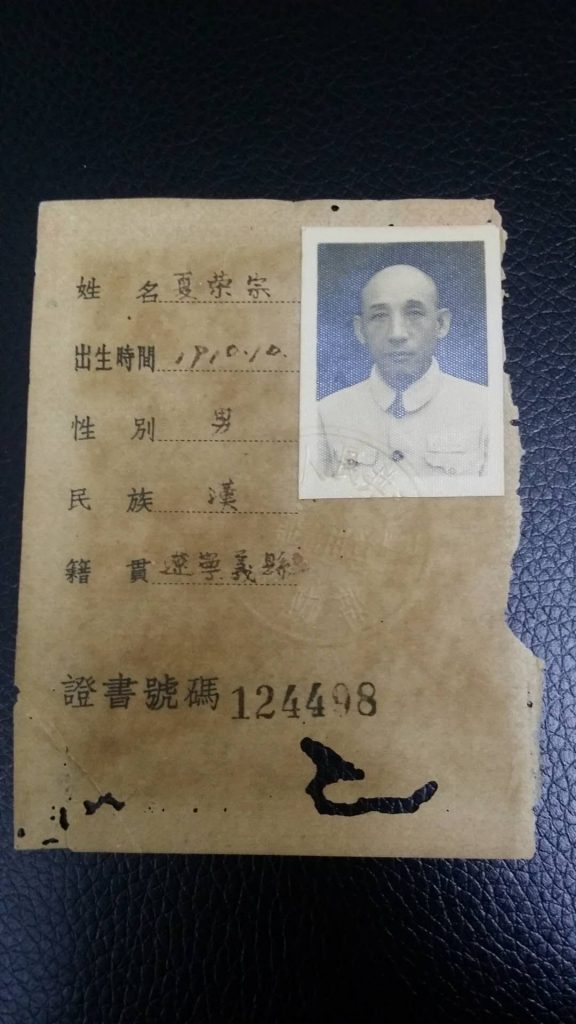 姓 名 夏荣宗
出生時間 1910.10.
性 別 男
民 族 漢
籍 貫 遼寧義縣
證書號碼 124498